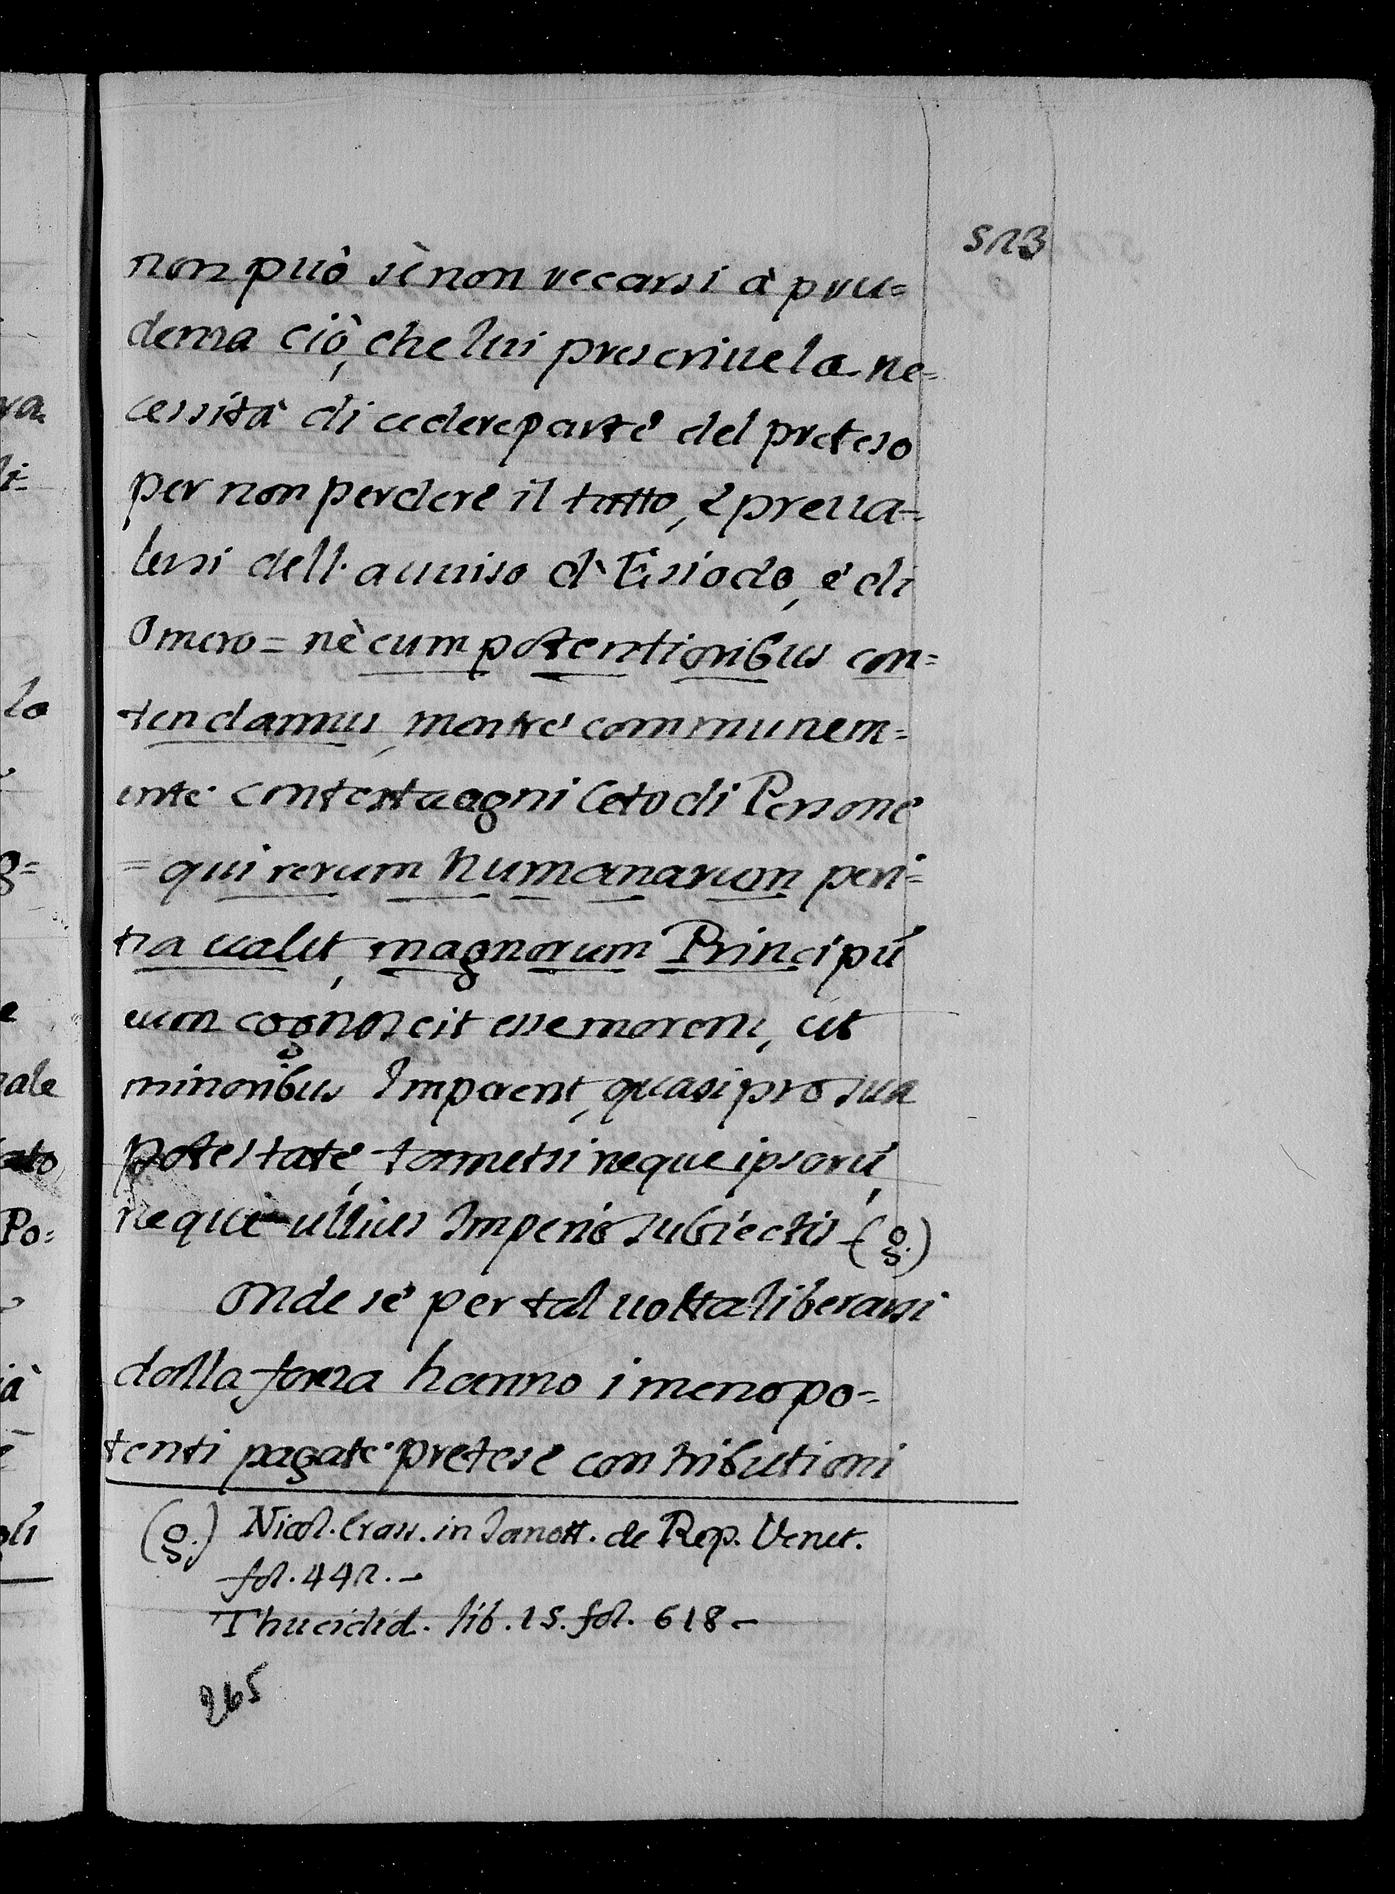 523
non può sè non recarsi à pru=
denza ciò, che lui prescriue la ne=
cessità di cedere parte del preteso
per non perdere il tutto, è preua=
lersi dell'auuiso d'Esiodo, e di
Omero = nè cum potentioribus con=
tendamus, mentre communem=
ente contesta ogni Ceto di Persone
= qui rerum humanarum peri=
tia ualet, magnorum Principũ
eum cognoscit esse morem, ut
minoribus Imperent, quasi pro sua
potestate, tametsi neque ipsorũ,
neque ullius Imperio subiectis - (g.)
Onde se per tal uolta liberarsi
dalla forza hanno i meno po=
tenti pagate pretese contributioni
(g.) Nicol. Crass. in Ianott. de Rep. Venet.
fol. 442. -
Thucidid. lib. 15. fol. 618 -
265